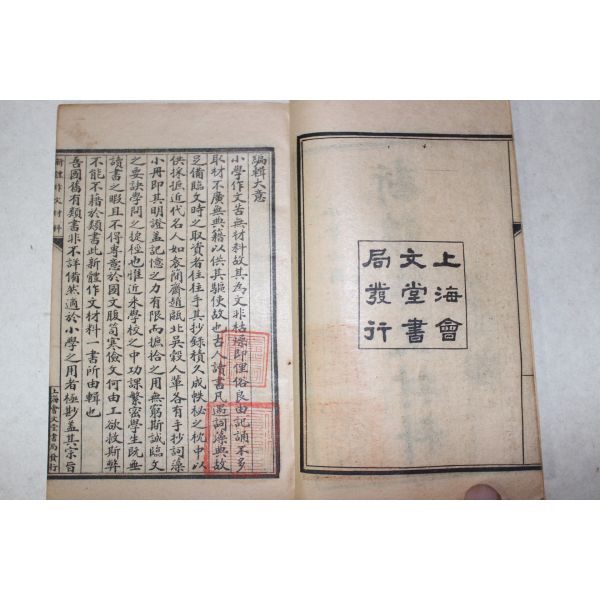 上海會
文堂書
局發行
編輯大意
小學作文苦無材料故其為文非枯燥即俚俗良由記誦不多
取材不廣無典籍以供其驅使故也古人讀書凡遇詞藻典故
足備臨文時之取資者往往手其抄錄積久成帙秘之枕中以
供採摭近代名人如袁簡齋趙甌北吳穀人輩各有手抄詞藻
小冊即其明證蓋記憶之力有限而摭拾之用無窮斯誠臨文
之要訣學問之捷徑也惟近來學校之中功課繁密學生既無
讀書之暇且不得專意於國文腹笥寒儉文何由工欲救斯弊
不能不藉於類書此新體作文材料一書所由輯也
吾國舊有類書非不詳備然適於小學之用者極尟蓋其宗旨
新體作文材料
上海會文堂書局發行